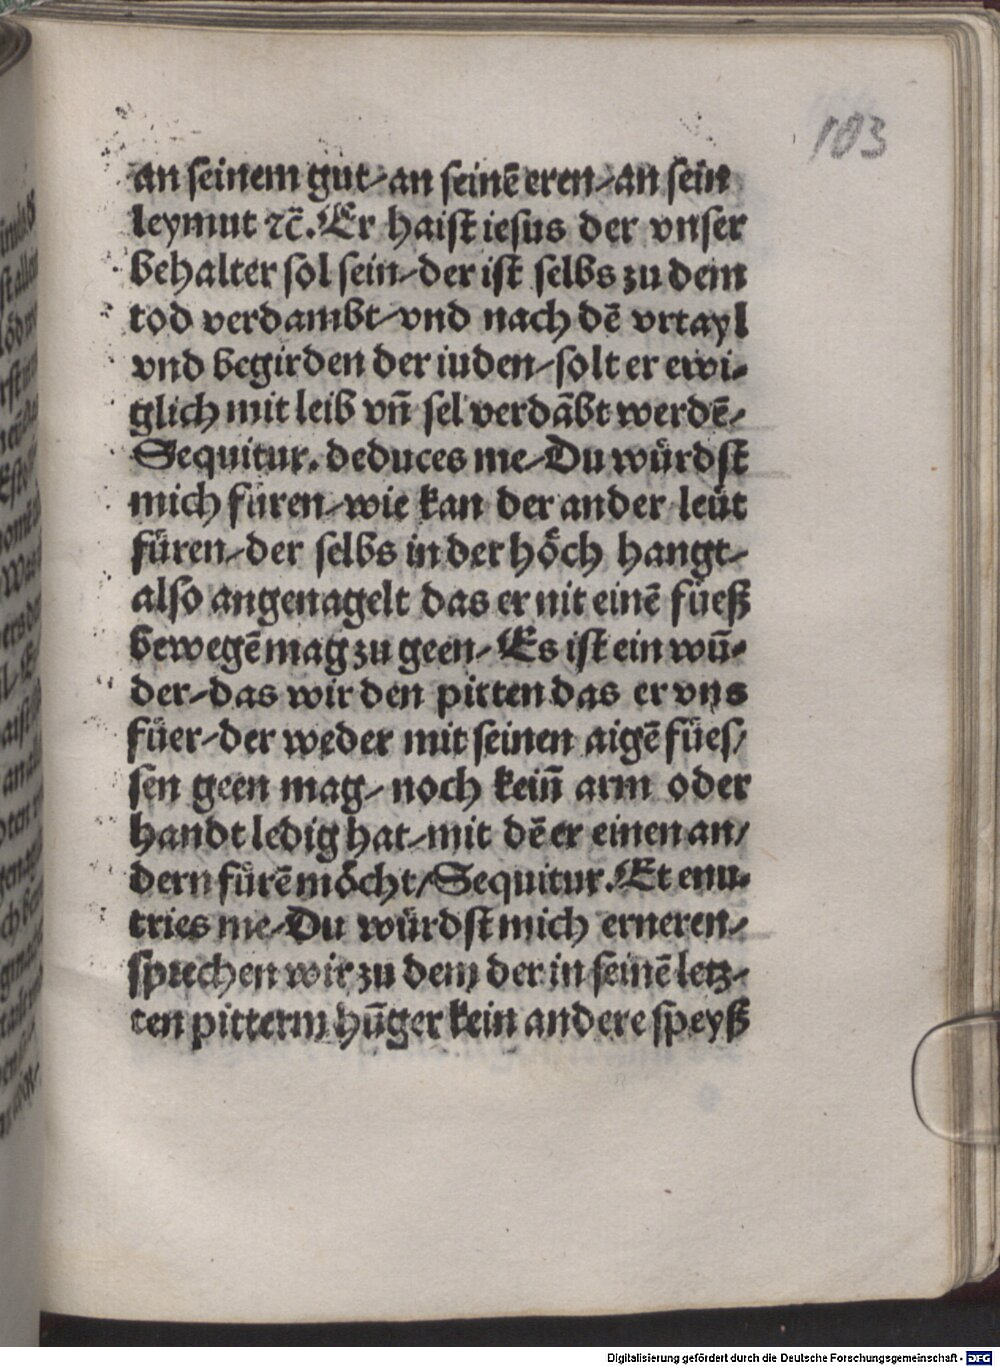 103
an seinem gut/an seinē eren/an sein
leymut ⁊c̄. Er haist iesus der vnser
behalter sol sein/der ist selbs zu dem
tod verdambt/vnd nach dē vrtayl
vnd begirden der iuden/solt er ewi-
glich mit leib vn̄ sel verdābt werdē/
Sequitur. deduces me/Du würdst
mich füren/wie kan der ander leüt
füren/der selbs in der höch hangt/
also angenagelt das er nit einē füeß
bewegē mag zu geen/Es ist ein wū-
der/das wir den pitten das er vns
füer/der weder mit seinen aigē fües/
sen geen mag/noch kein̄ arm oder
handt ledig hat/mit dē er einen an/
dern fürē möcht/Sequitur. Et enu-
tries me/Du würdst mich erneren/
sprechen wir zu dem der in seinē letz-
ten pitterm hūger kein andere speyß
Digitalisierung gefördert durch die Deutsche Forschungsgemeinschaft - DFG